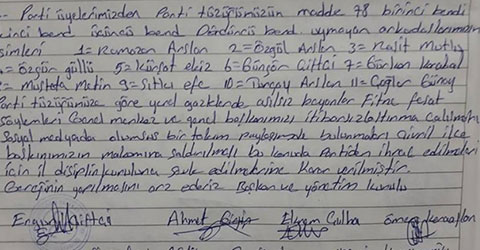 - Parti üyelerimizden Parti tüzüğümüzün madde 78 birinci bendi
ikinci bend üçüncü bend Dördüncü bend uymayan arkadaşlarımızın
isimleri 1= Ramazan Arslan 2= Özgül Arslan 3= Raşit Mutlu
= Özgür güllü 5= Kürşat ekiz 6= Güngör Çiftci 7= Gürkan karakal
= Mustafa Metin 9= Sıtkı efe 10= Tuncay Arslan 11= Çağlar Günay
Parti tüzüğümüze göre yerel gazetelerde asılsız beyanler Fitne fesat
söylemleri Genel merkez ve genel başkanımızı itibarsızlaştırma çalışmaları
Sosyal medyada olumsuz bir takım paylaşımda bulunmaları ilçe
başkanımızın makamına saldırılması bu konuda Partiden ihraç edilmeleri
için il disiplin kuruluna sevk edilmelerine karar verilmiştir.
Gereğinin yapılmasını arz ederiz Başkan ve yönetim kurulu
Çiftci Ahmet Ekrem Culha ömer karaaslan